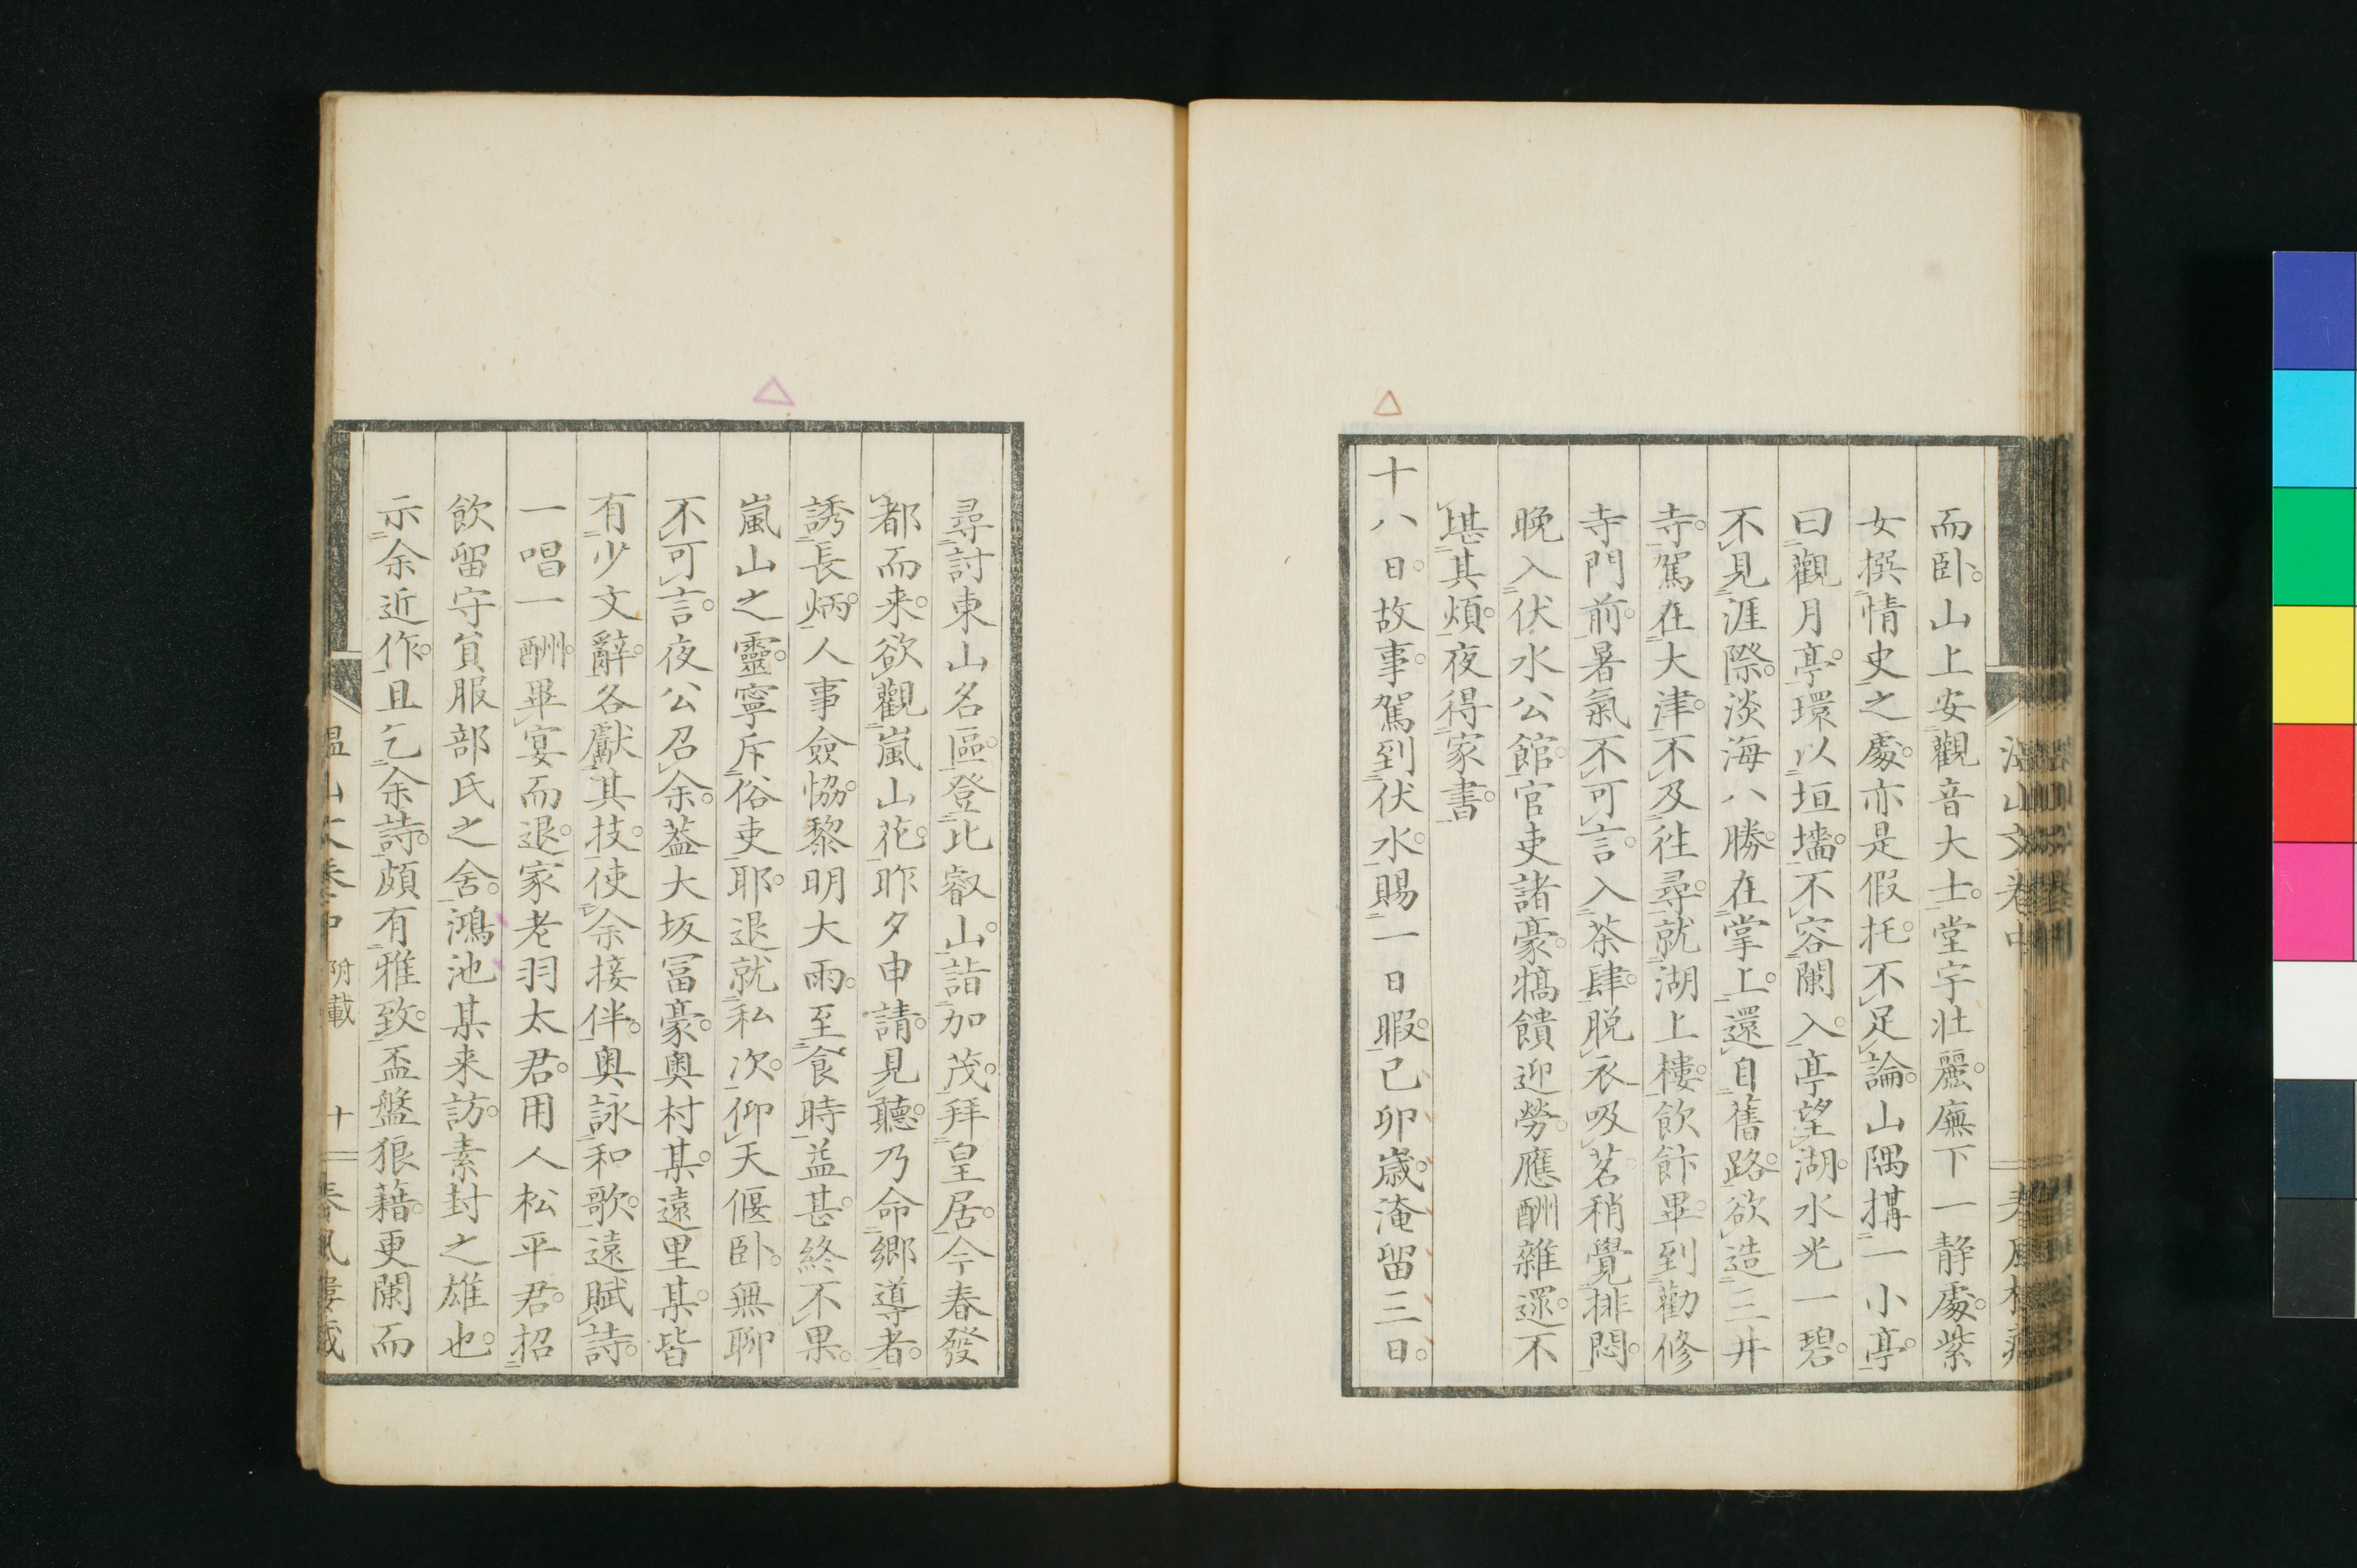 而卧。山上安觀音大士。堂宇壯麗。廡下一静處。紫
女撰情史之處。亦是假托。不足論。山隅搆一小亭。
曰觀月亭。環以垣墻。不容闌入。亭望湖水光一碧。
不見涯際。淡海八勝。在掌上。還自舊路。欲造三井
寺。駕在大津。不及往尋。就湖上樓。飲飰畢。到勸修
寺門前。暑氣不可言。入茶肆。脱衣吸茗。稍覺排悶。
晩入伏水公館。官吏諸豪。犒饋迎勞。應酬雜遝。不
堪其煩。夜得家書。
十八日。故事。駕到伏水。賜一日暇。己卯歳。淹留三日。
尋討東山名區。登比叡山。詣加茂。拜皇居。今春發
都而来。欲觀嵐山花。昨夕申請見聽。乃命鄉導者。
誘長炳。人事僉協。黎明大雨。至食時益甚。終不果。
嵐山之靈。寧斥俗吏耶。退就私次。仰天偃卧。無聊
不可言。夜公召余。葢大坂冨豪。奥村某。遠里某。皆
有少文辭。各獻其技。使余接伴。奥詠和歌。遠賦詩。
一唱一酬。畢宴而退。家老羽太君。用人松平君。招
飲留守貟服部氏之舍。鴻池某来訪。素封之雄也。
示余近作。且乞余詩。頗有雅致。盃盤狼藉。更闌而
温山文卷中 附載 十 春風樓藏